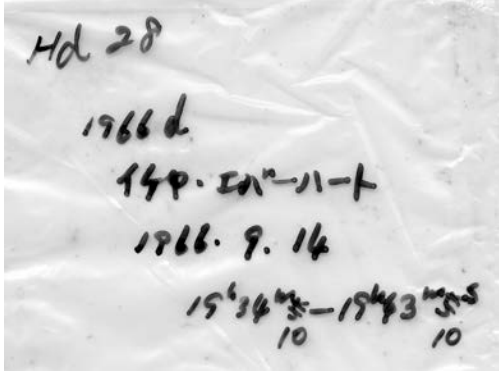 Hd 28
1966 d
イケヤ・エバーハート
1966. 9. 14
19h34m10s-19h43m10s